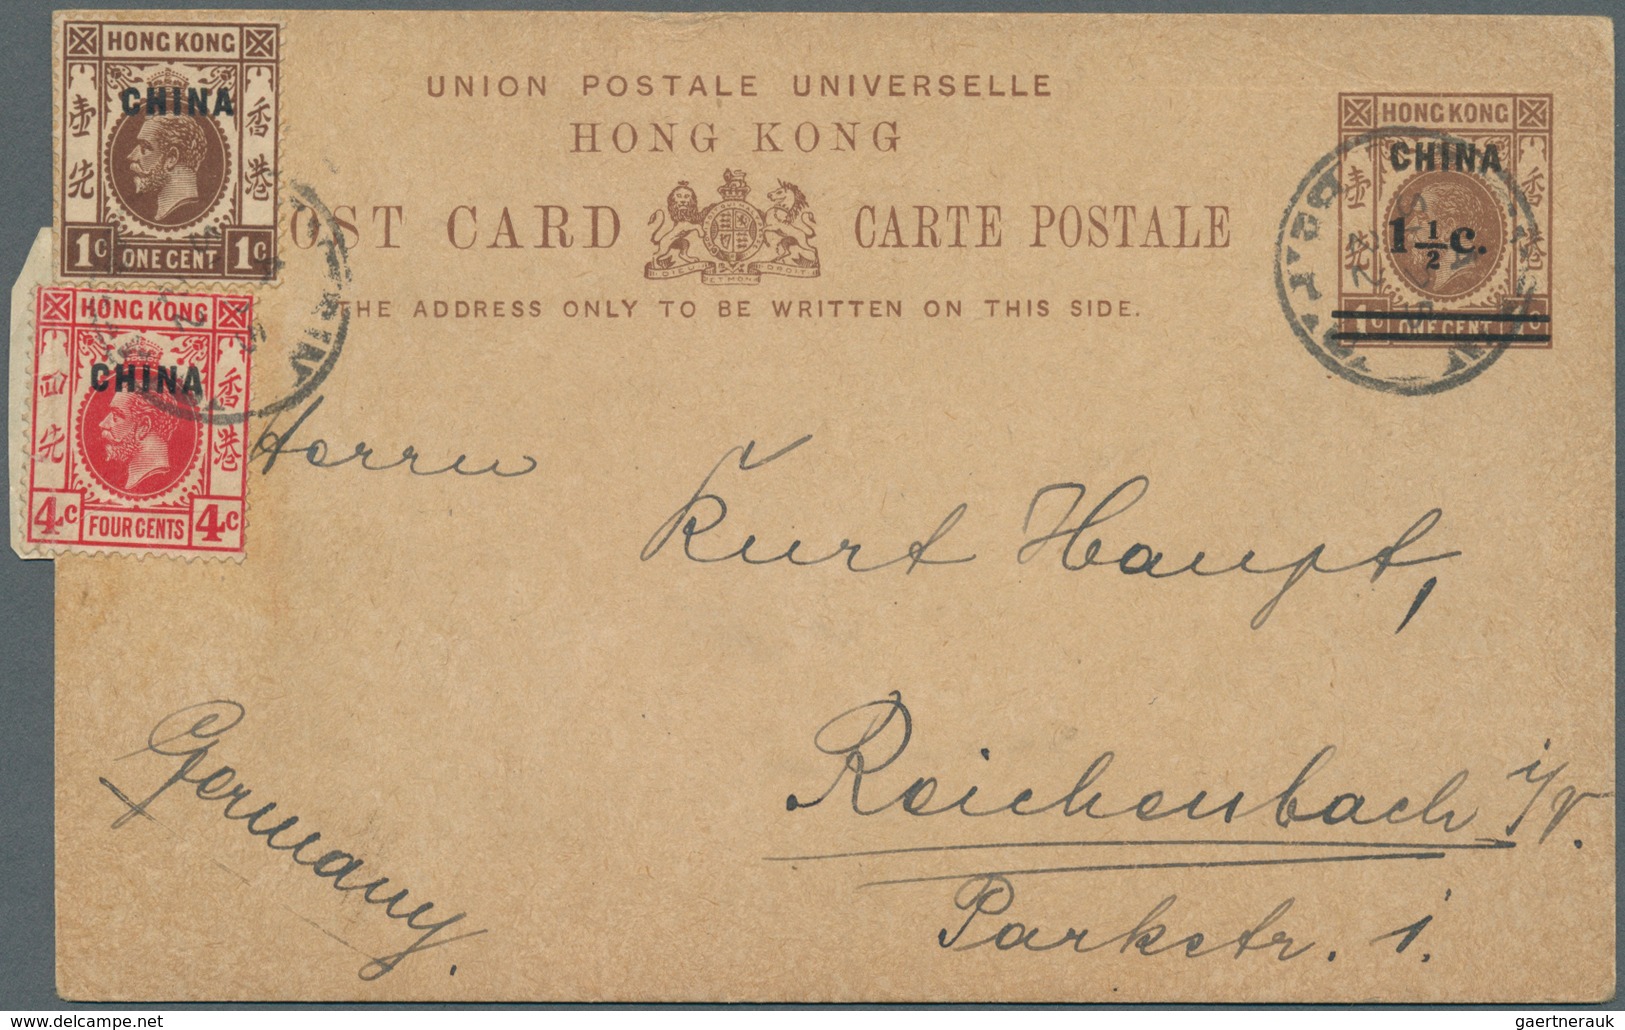 HONG KONG
CHINA
壹先
香港
1c ONE CENT 1c
HONG KONG
CHINA
四先
香港
4c FOUR CENTS 4c
UNION POSTALE UNIVERSELLE
HONG KONG
OST CARD CARTE POSTALE
DIEU ET MON DROIT
THE ADDRESS ONLY TO BE WRITTEN ON THIS SIDE.
HONG KONG
CHINA
壹先
香港
1 1/2 c.
1c ONE CENT 1c
Herrn
Kurt Haupt,
Reichenbach i/V.
Parkstr. 1.
Germany.
gaertnerauk @ www.delcampe.net